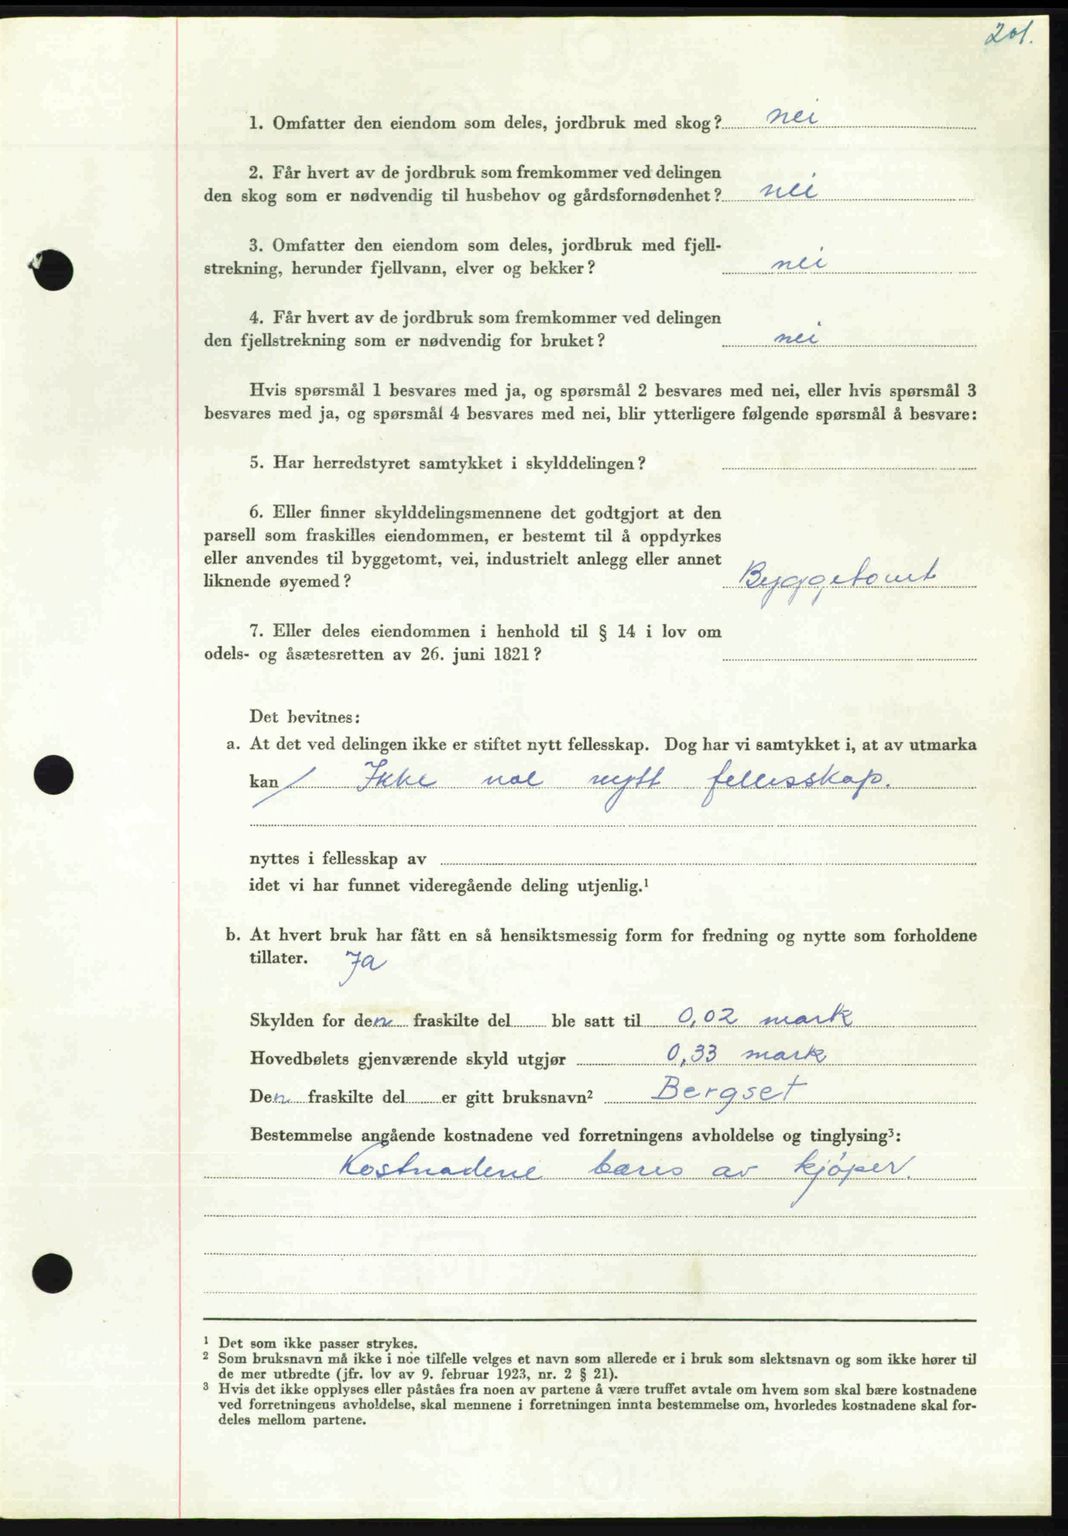 201.
1. Omfatter den eiendom som deles, jordbruk med skog? nei
2. Får hvert av de jordbruk som fremkommer ved delingen
den skog som er nødvendig til husbehov og gårdsfornødenhet? nei
3. Omfatter den eiendom som deles, jordbruk med fjell-
strekning, herunder fjellvann, elver og bekker? nei
4. Får hvert av de jordbruk som fremkommer ved delingen
den fjellstrekning som er nødvendig for bruket? nei
Hvis spørsmål 1 besvares med ja, og spørsmål 2 besvares med nei, eller hvis spørsmål 3
besvares med ja, og spørsmål 4 besvares med nei, blir ytterligere følgende spørsmål å besvare:
5. Har herredstyret samtykket i skylddelingen?
6. Eller finner skylddelingsmennene det godtgjort at den
parsell som fraskilles eiendommen, er bestemt til å oppdyrkes
eller anvendes til byggetomt, vei, industrielt anlegg eller annet
liknende øyemed? Byggetomt
7. Eller deles eiendommen i henhold til § 14 i lov om
odels- og åsætesretten av 26. juni 1821?
Det bevitnes:
a. At det ved delingen ikke er stiftet nytt fellesskap. Dog har vi samtykket i, at av utmarka
kan / Ikke noe nytt fellesskap.
nyttes i fellesskap av
idet vi har funnet videregående deling utjenlig.¹
b. At hvert bruk har fått en så hensiktsmessig form for fredning og nytte som forholdene
tillater. Ja
Skylden for den fraskilte del ble satt til 0,02 mark
Hovedbølets gjenværende skyld utgjør 0,33 mark
Den fraskilte del er gitt bruksnavn² Bergset
Bestemmelse angående kostnadene ved forretningens avholdelse og tinglysing³:
Kostnadene bæres av kjøper.
¹ Det som ikke passer strykes.
² Som bruksnavn må ikke i noe tilfelle velges et navn som allerede er i bruk som slektsnavn og som ikke hører til
de mer utbredte (jfr. lov av 9. februar 1923, nr. 2 § 21).
³ Hvis det ikke opplyses eller påståes fra noen av partene å være truffet avtale om hvem som skal bære kostnadene
ved forretningens avholdelse, skal mennene i forretningen innta bestemmelse om, hvorledes kostnadene skal for-
deles mellom partene.